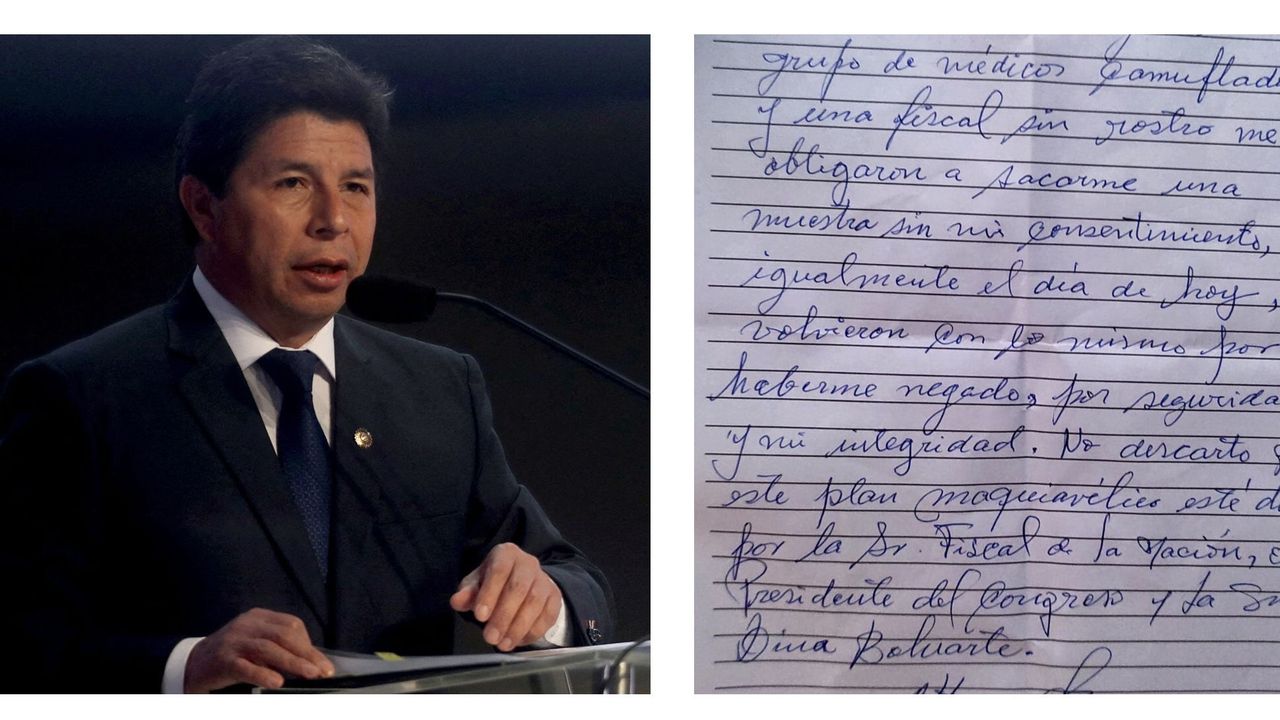 grupo de médicos camuflad
y una fiscal sin rostro me
obligaron a sacarme una
muestra sin mi consentimiento,
igualmente el día de hoy,
volvieron con lo mismo por
haberme negado, por segurida
y mi integridad. No descarto
este plan maquiavélico esté d
por la Sr. Fiscal de la Nación,
Presidente del Congreso y la Sr
Dina Boluarte.